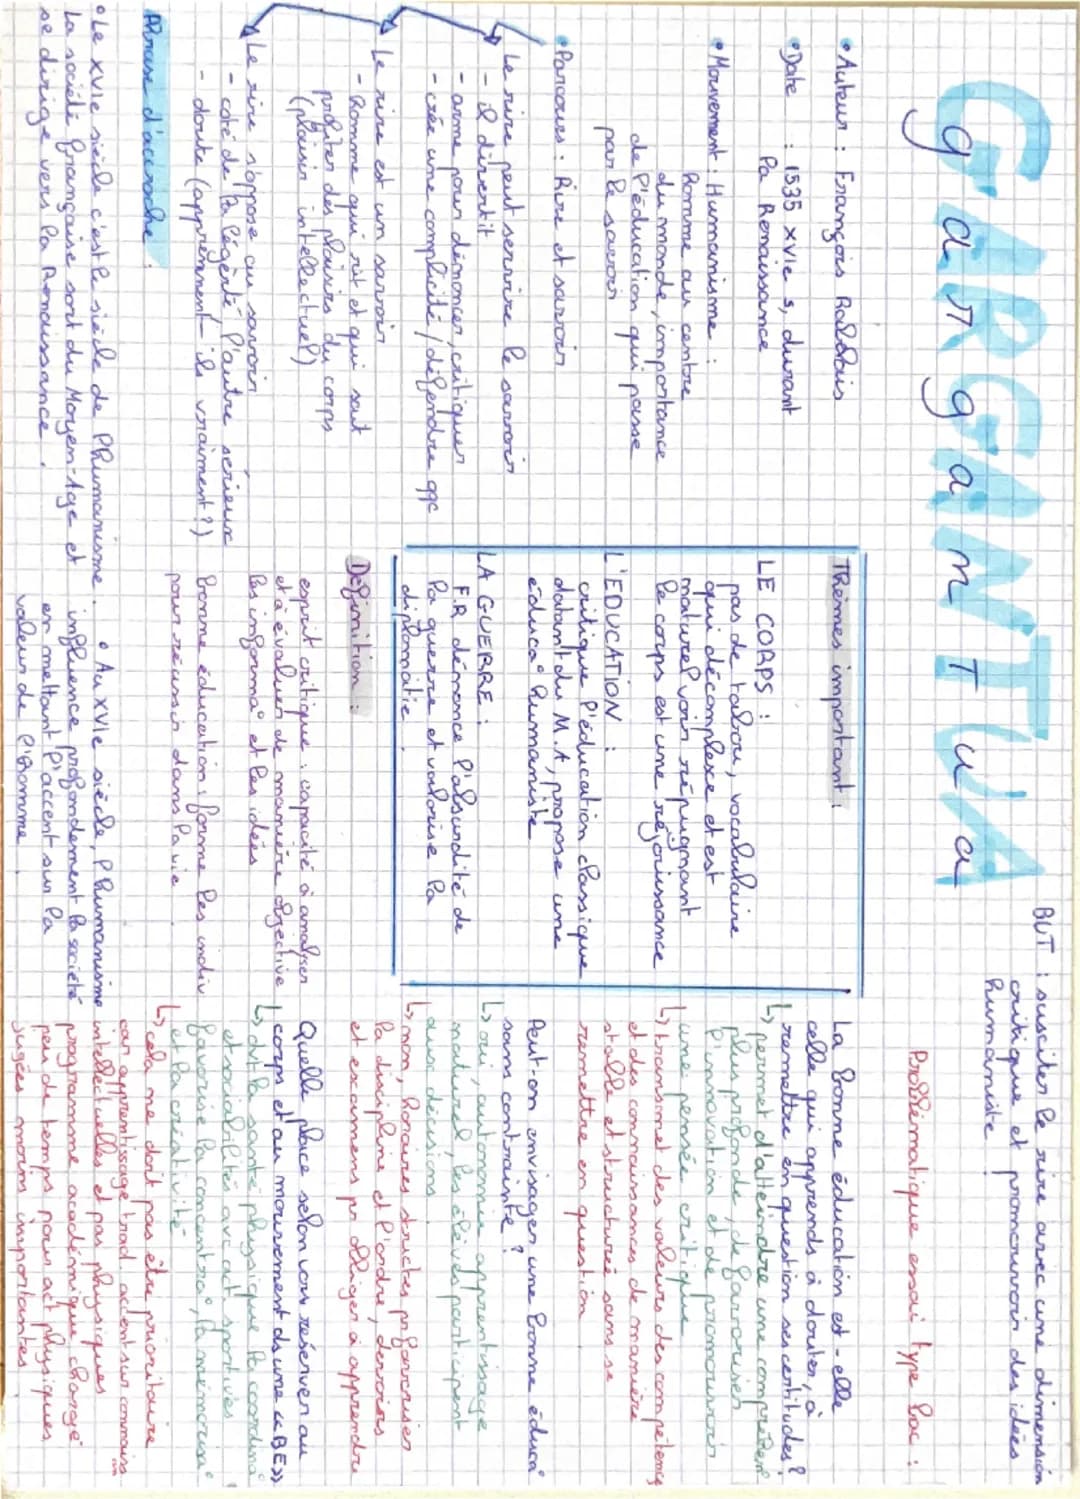 GARGANTUA
gargantua
BUT : susciter le rire avec une dimension
critique et promouvoir des idées
humaniste
• Auteur : François Rabelais
• Date : 1535 XVIe s, durant
la Renaissance
• Mouvement : Humanisme :
homme au centre
du monde, importance
de l'éducation qui passe
par le savoir
• Parcours : Rire et savoir
Le rire peut servire le savoir
- il divertit
- arme pour dénoncer, critiquer
- crée une complicité / défendre qqc
Le rire est un savoir
- homme qui rit et qui sait
profiter des plaisirs du corps
(plaisir intellectuel)
Le rire s'oppose au savoir
- côté de la légèrté l'autre sérieux
- doute (apprennent-ils vraiment ?)
Thèmes important :
LE CORPS :
pas de tabou, vocabulaire
qui décomplexe et est
naturel voir répugnant
le corps est une réjouissance
L'EDUCATION :
critique l'éducation classique
datant du M.A, propose une
éduca° humaniste
LA GUERRE :
F.R dénonce l'absurdité de
la guerre et valorise la
diplomatie.
Définition :
esprit critique : capacité à analyser
et à évaluer de manière objective
les informa° et les idées
bonne éducation : forme les indiv
pour réussir dans la vie
Problématique essai type bac :
La bonne éducation est-elle
celle qui apprends à douter, à
remettre en question ses certitudes ?
↳ permet d'atteindre une compréhen°
plus profonde, de favoriser
l'innovation et de promouvoir
une pensée critique
↳ transmet des valeurs, des compétences
et des connaissances de manière
stable et structurée sans se
remettre en question
Peut-on envisager une bonne éduca°
sans contrainte ?
↳ oui, autonomie, apprentissage
naturel, les élèves participent
aux décisions.
↳ non, horaires strictes pr favoriser
la discipline et l'ordre, devoirs
et examens pr obliger à apprendre
Quelle place selon vous réserver au
corps et au mouvement ds une «BE»
↳ dvt la santé physique la coordina°
et sociabilités avc act sportives
favorise la concentra°, la mémorisa°
et la créativité
↳ cela ne doit pas être prioritaire
car apprentissage trad. accent sur connaiss
intellectuelles et pas physiques
programme académique chargé
peu de temps pour act physiques
jugées moins importantes
Phrase d'accroche :
• Le XVIe siècle c'est le siècle de l'humanisme.
La société française sort du Moyen-Age et
se dirige vers la Renaissance.
• Au XVIe siècle, l'humanisme
influence profondement la société
en mettant l'accent sur la
valeur de l'homme.